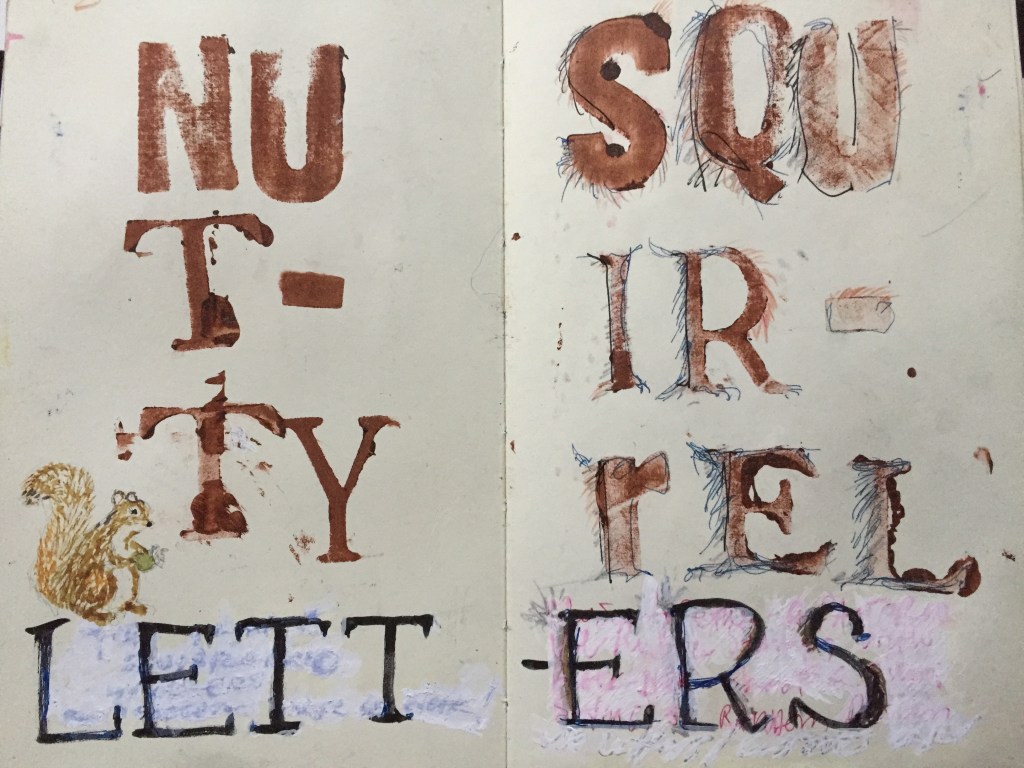 NU
T-
TY
SQU
IR-
rEL
LETT-ERS